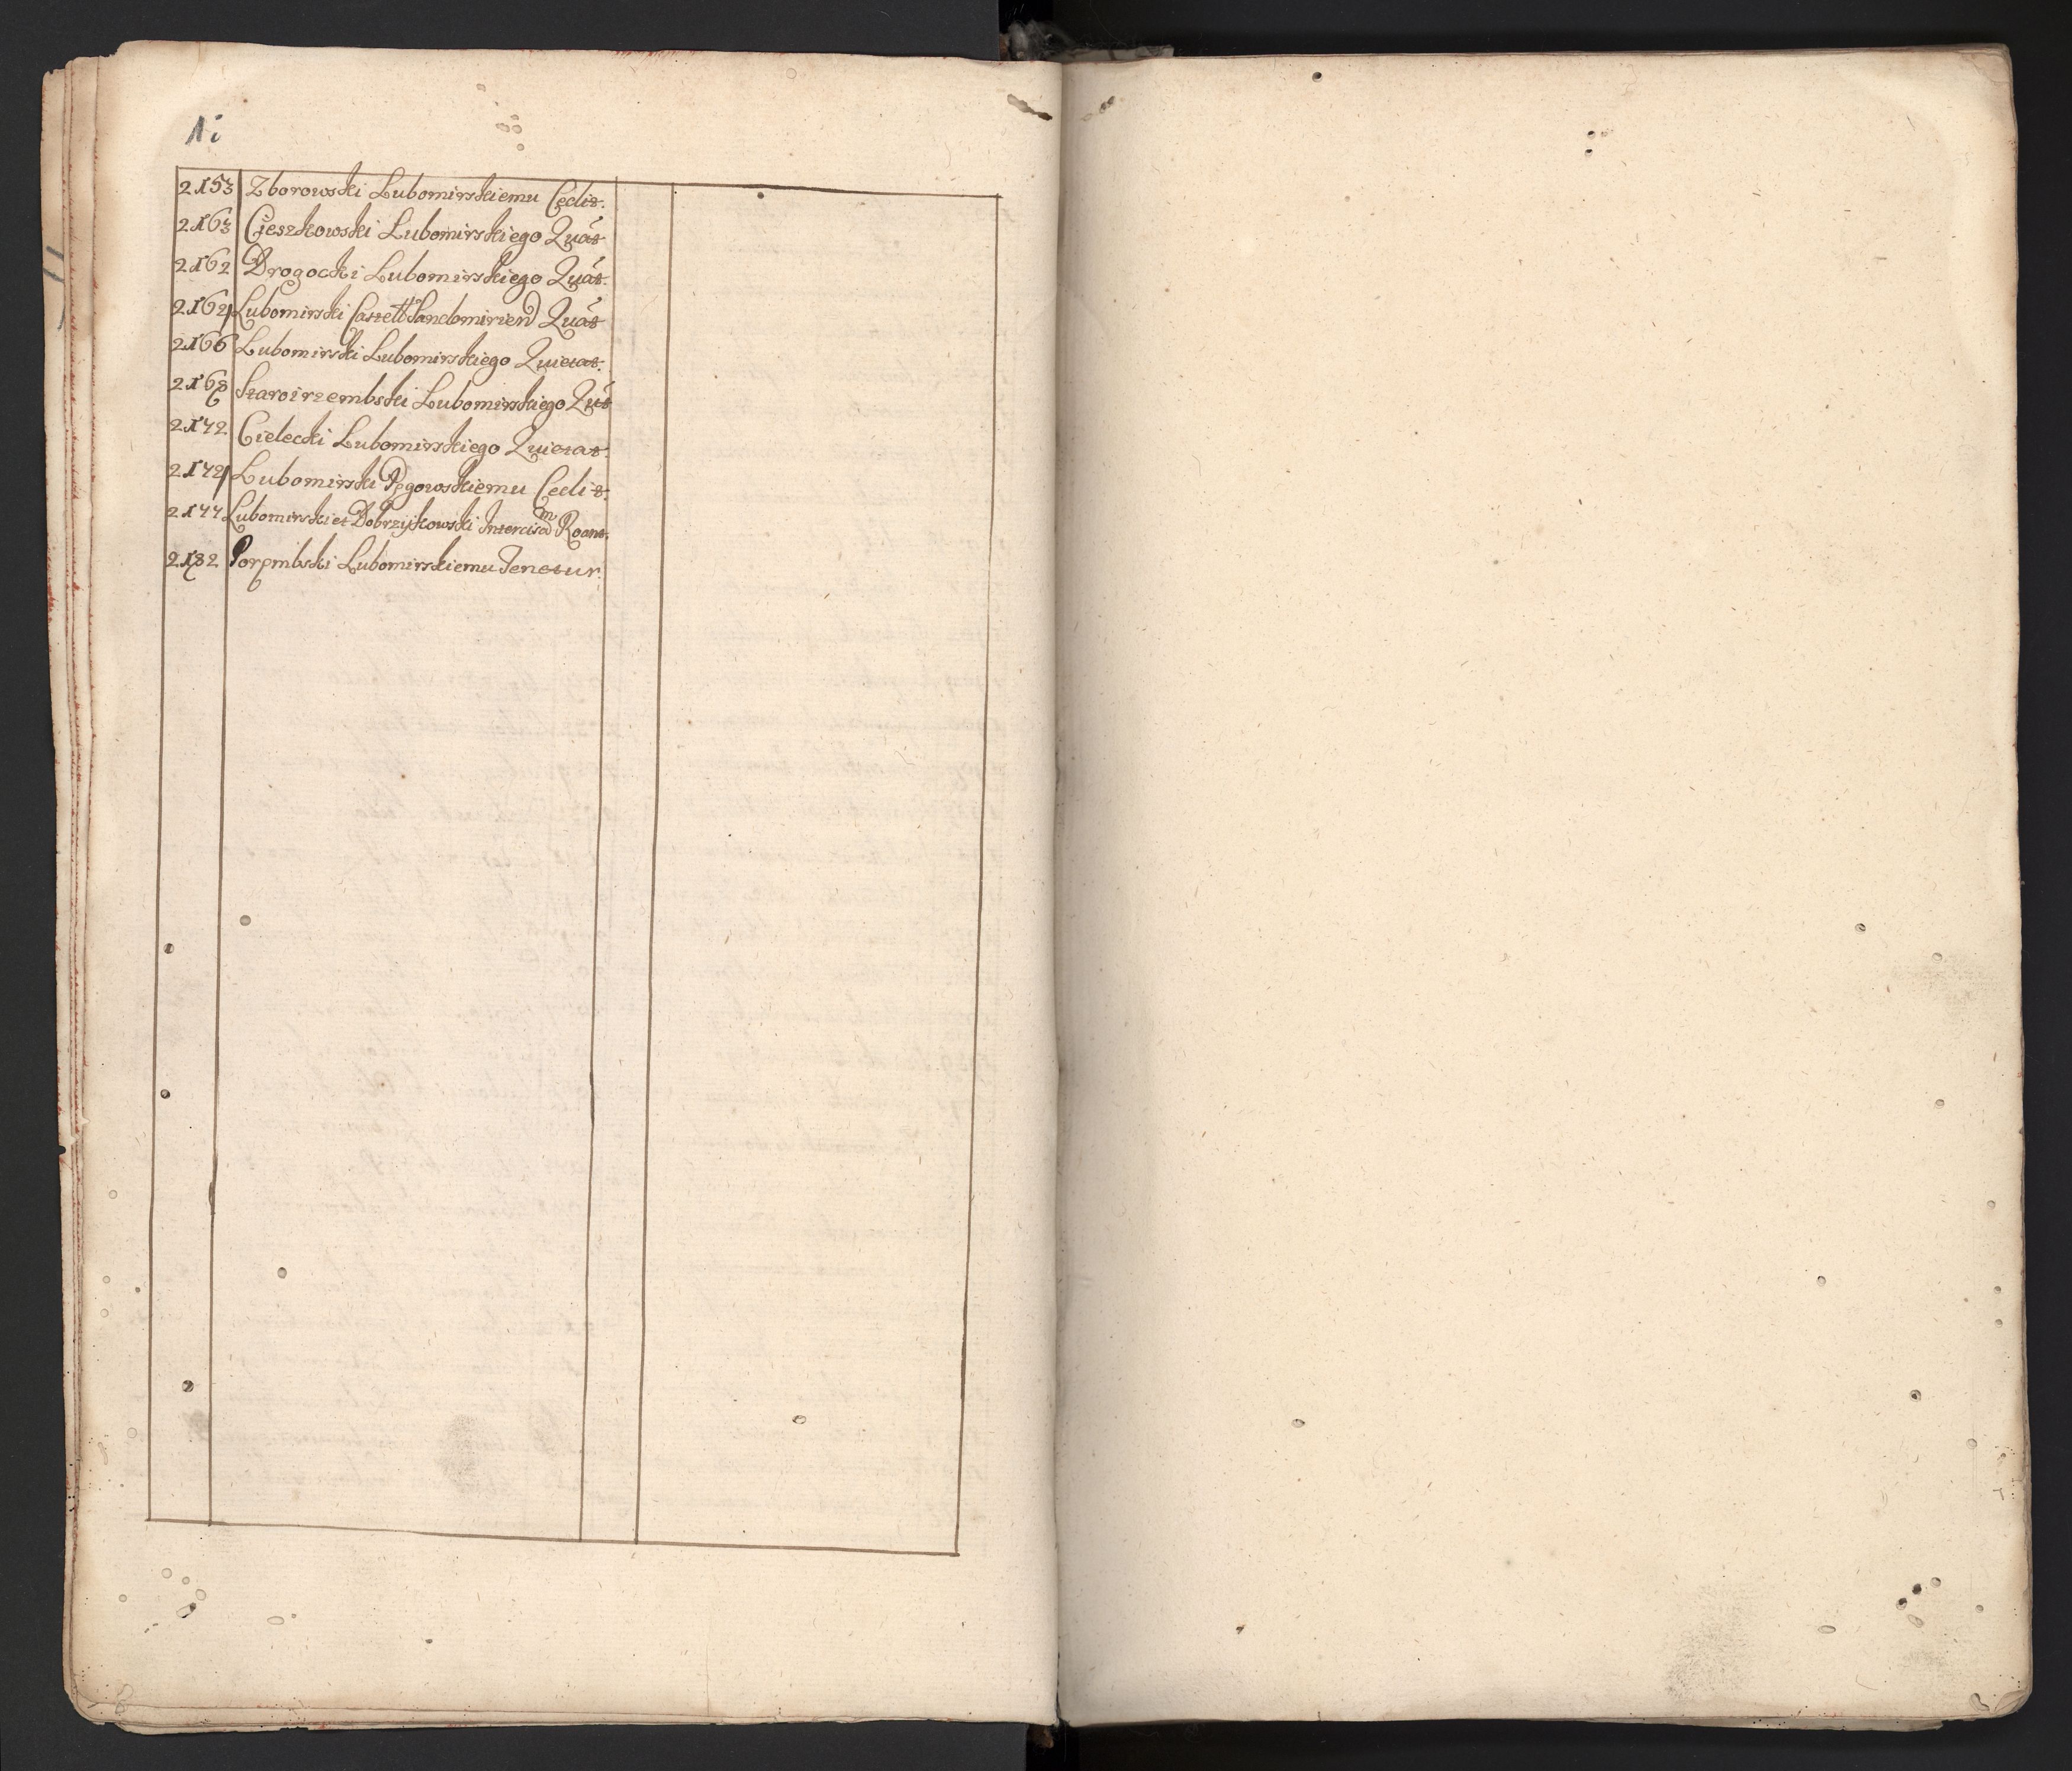 2153 Zborowski Lubomirskiemu Cedit.
2163 Cieszkowski Lubomirskiego Quát
2162 Drogocki Lubomirskiego Quát.
2162 Lubomirski Castell Sandomirien Quát
2166 Lubomirski Lubomirskiego Quietat.
2168 Staroirzembski Lubomirskiego Qut
2172 Cielecki Lubomirskiego Quietat.
2172 Lubomirski Pęgowskiemu Cedit.
2177 Lubomirski et Dobrzykowski Intercisam Roant.
2182 Poręmbski Lubomirskiemu Tenetur.